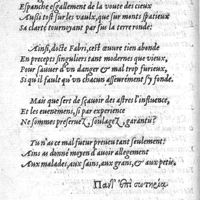 Espanche esgallement de la voute des cieux
Aussi tost sur les vaulx, que sur monts spatieux
Sa clarté tournoyant par sus la terre ronde:
Ainsi, docte Fabri, cest œuure tien abonde
En preceptz singuliers tant modernes que vieux,
Pour sauuer d'un danger & mal trop furieux,
Si qu'il fault qu'un chacun asseurement s'y fonde.
Mais que sert de sçauoir des astres l'influence,
Et les euenemens, si par experience
Ne sommes preseruez, soulagez, garantiz?
Tu n'as ce mal futur preueu tant seulement:
Ains as donné moyen d'auoir allegement
Aux malades, aux sains, aux grans, & aux petis,